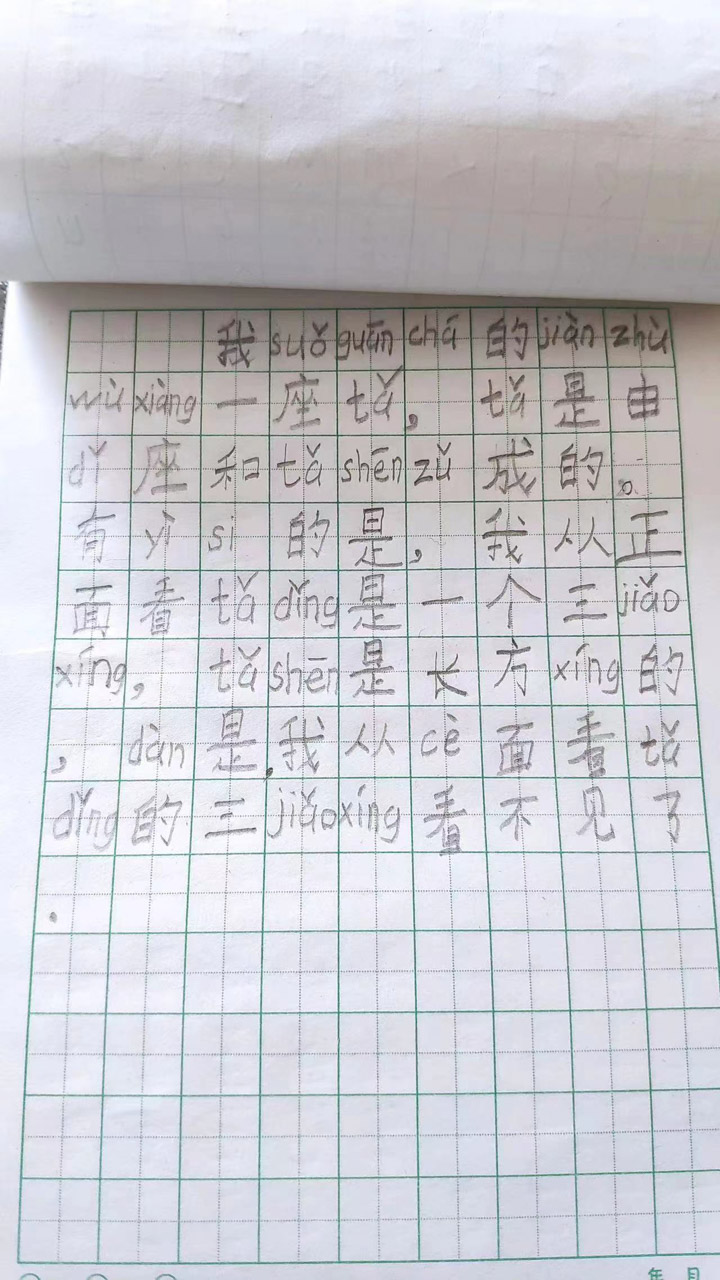 我suǒguānchá的jiànzhù
wùxiàng一座tǎ，tǎ是由
dǐ座和tǎshēnzǔ成的。
有yìsi的是，我从正
面看tǎdǐng是一个三jiǎo
xíng，tǎshēn是长方xíng的
，dàn是，我从cè面看tǎ
dǐng的三jiǎoxíng看不见了
.
年 月